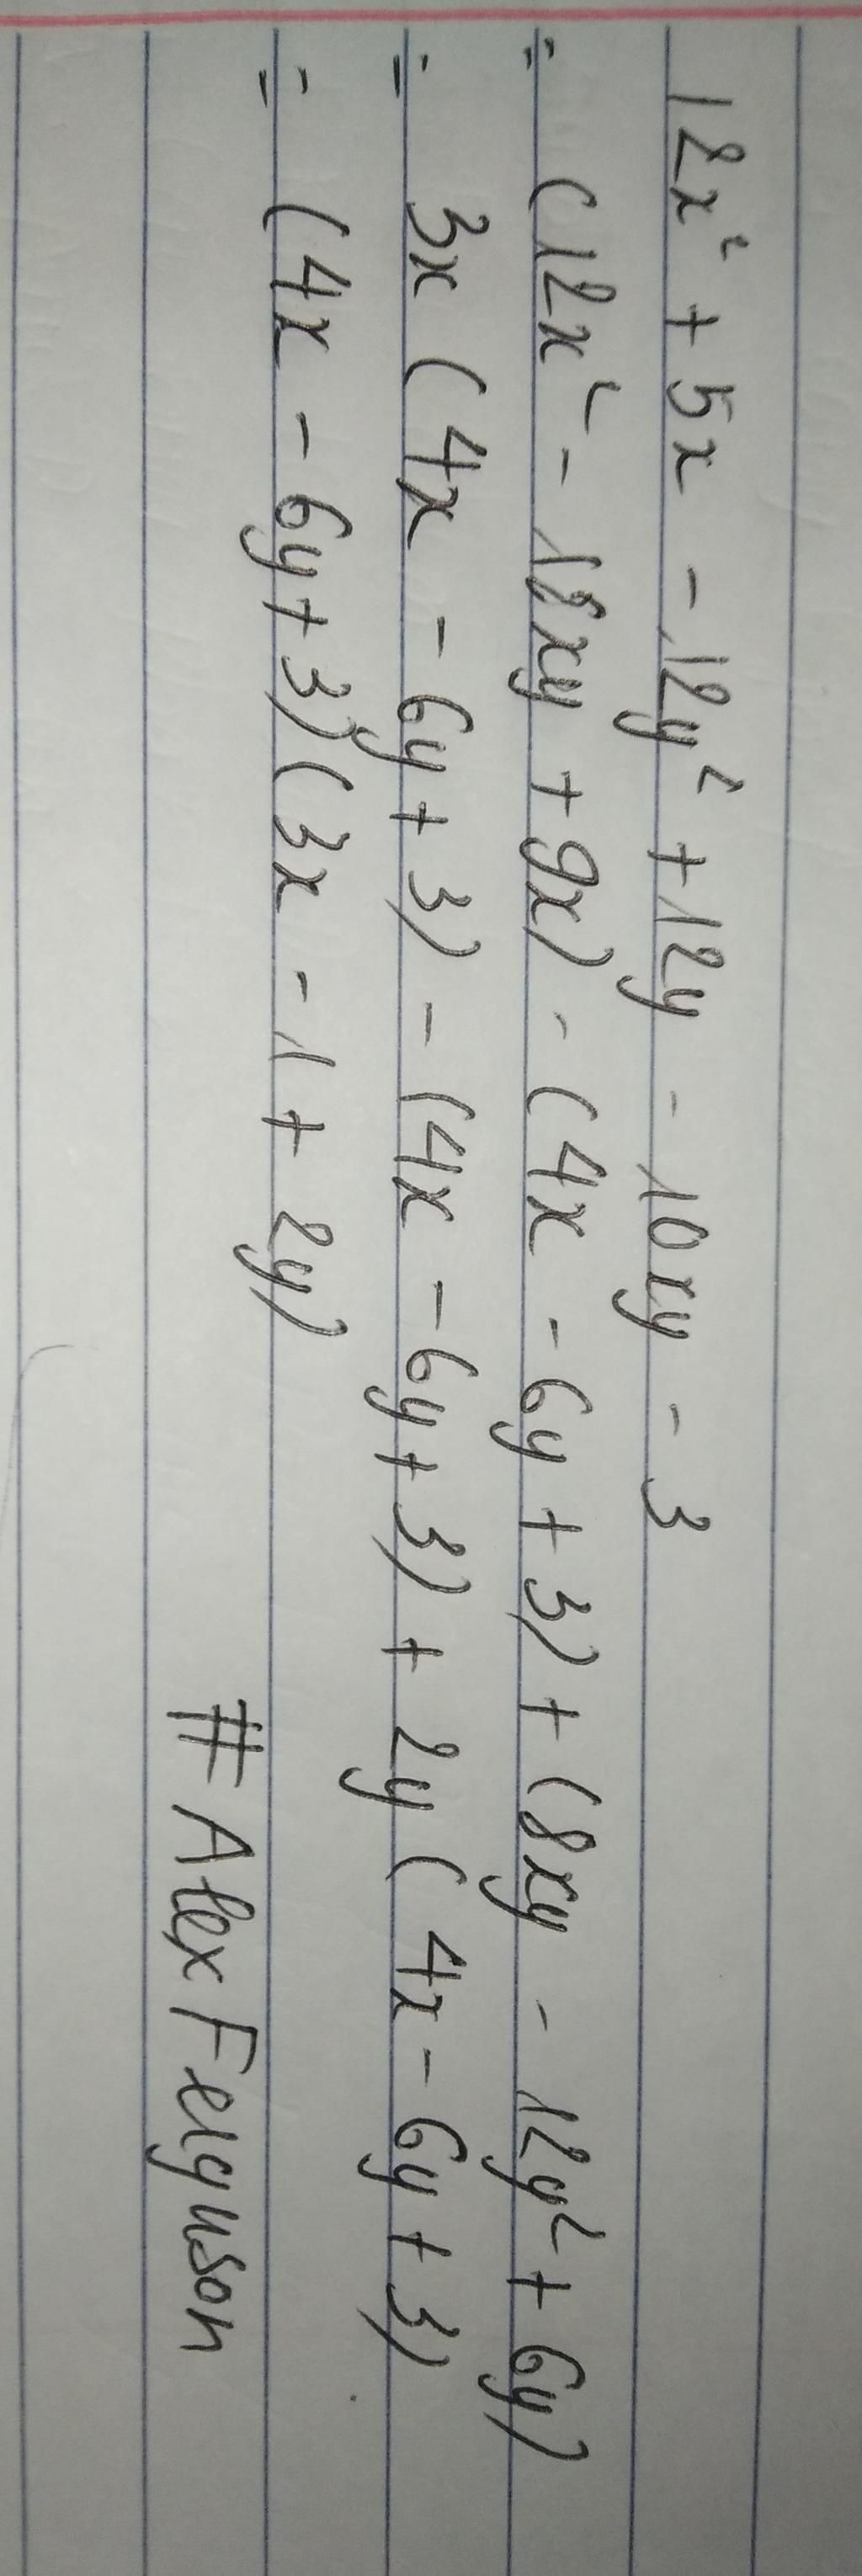 12x² + 5x - 12y² + 12y - 10xy - 3
= (12x² - 18xy + 9x) - (4x - 6y + 3) + (8xy - 12y² + 6y)
= 3x (4x - 6y + 3) - (4x - 6y + 3) + 2y (4x - 6y + 3)
= (4x - 6y + 3)(3x - 1 + 2y)
# Alex Ferguson